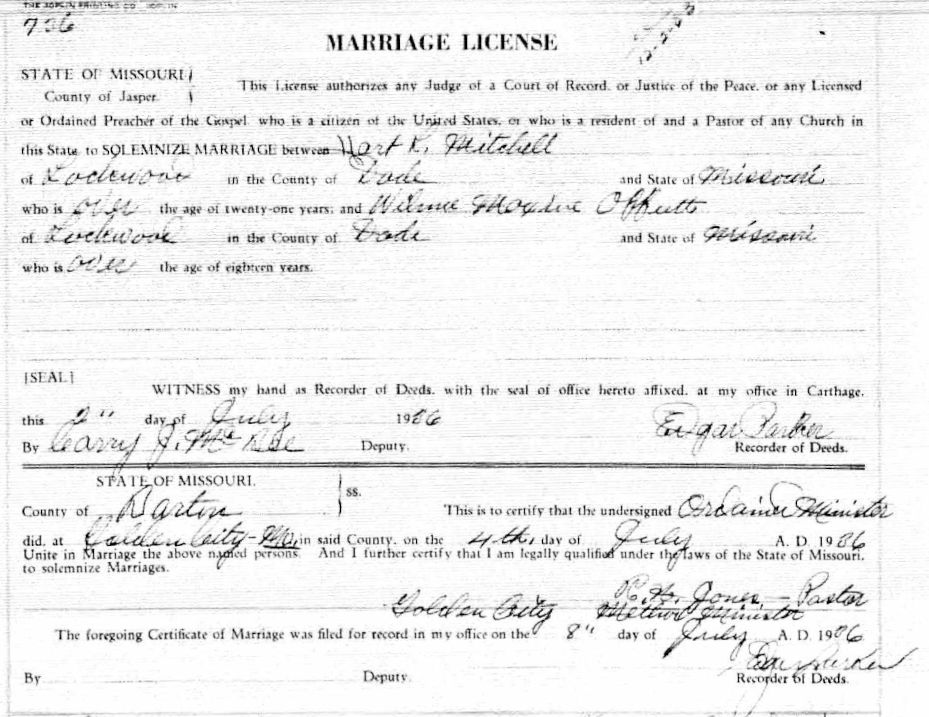 THE JOPLIN PRINTING CO., JOPLIN
736
12-2-63
MARRIAGE LICENSE
STATE OF MISSOURI
County of Jasper.
This License authorizes any Judge of a Court of Record, or Justice of the Peace, or any Licensed
or Ordained Preacher of the Gospel, who is a citizen of the United States, or who is a resident of and a Pastor of any Church in
this State, to SOLEMNIZE MARRIAGE between Hart K. Mitchell
of Lockwood in the County of Dade and State of Missouri
who is over the age of twenty-one years; and Wilma Maxine Offutt
of Lockwood in the County of Dade and State of Missouri
who is over the age of eighteen years.
[SEAL]
WITNESS my hand as Recorder of Deeds, with the seal of office hereto affixed, at my office in Carthage,
this 2" day of July 1936 Edgar Parker
By Carry J. Mc Dee Deputy. Recorder of Deeds.
STATE OF MISSOURI.
ss.
County of Barton This is to certify that the undersigned Ordained Minister
did, at Golden City - Mo, in said County, on the 4th, day of July A. D. 1936
Unite in Marriage the above named persons. And I further certify that I am legally qualified under the laws of the State of Missouri.
to solemnize Marriages.
R. H. Jones - Pastor
Golden City Minister
The foregoing Certificate of Marriage was filed for record in my office on the 8" day of July A. D. 1936
Edgar Parker
By Deputy. Recorder of Deeds.